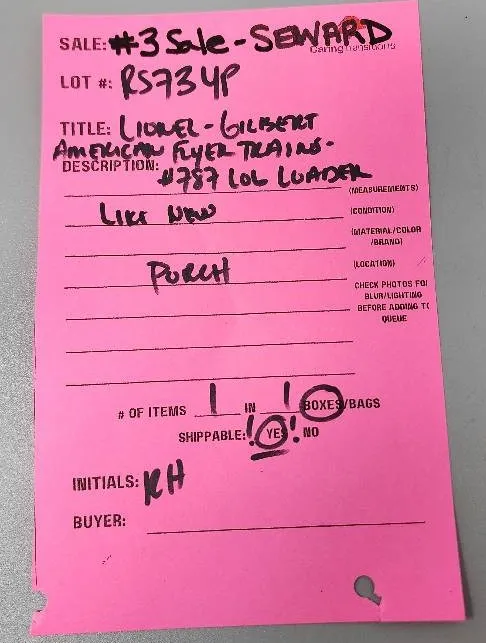 SALE: #3 Sale - SEWARD
CaringTransitions
LOT #: RS734P
TITLE: LIONEL - GILBERT
AMERICAN FLYER TRAINS -
DESCRIPTION: #787 LOL LOADER
(MEASUREMENTS)
LIKE NEW (CONDITION)
(MATERIAL/COLOR
/BRAND)
PORCH (LOCATION)
CHECK PHOTOS FO
BLUR/LIGHTING
BEFORE ADDING TO
QUEUE
# OF ITEMS 1 IN 1 BOXES/BAGS
SHIPPABLE: ! YES ! NO
INITIALS: RH
BUYER: